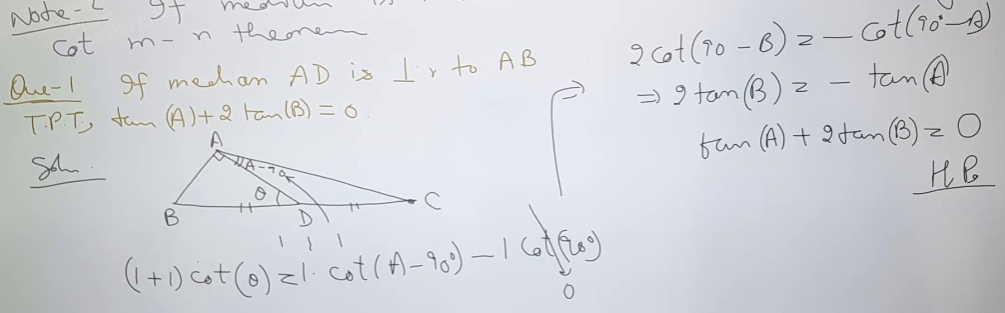 Note-2 If median is
Cot m-n theorem
Que-1 If median AD is ⊥r to AB
T.P.T, tan(A)+2 tan(B)=0.
Soln.
A
A-90°
θ
B D C
1 1 1
(1+1)cot(θ)=1. cot(A-90°)-1 Cot(90°)
0
⇒
2cot(90-B)= -cot(90°-A)
⇒ 2tan(B)= -tan(A)
tan(A)+2tan(B)=0
H.P.